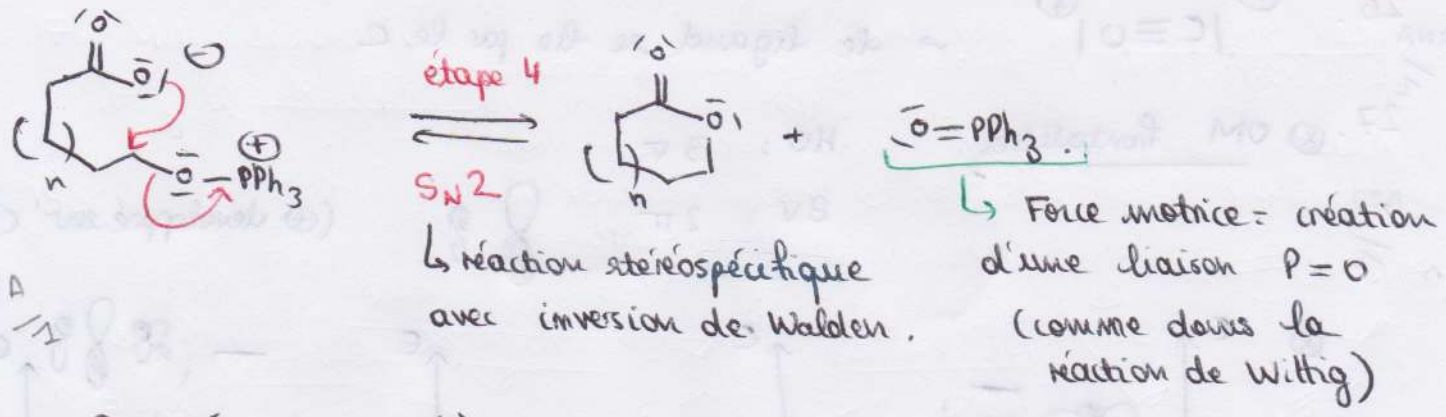 |C≡O|
étape 4
⇌
S_N2
↳ réaction stéréospécifique
avec inversion de Walden.
+
O=PPh3.
↳ Force motrice = création
d'une liaison P=O
(comme dans la
réaction de Wittig)
O
O
⊖
( )
n
O—PPh3
⊕
O
O
( )
n